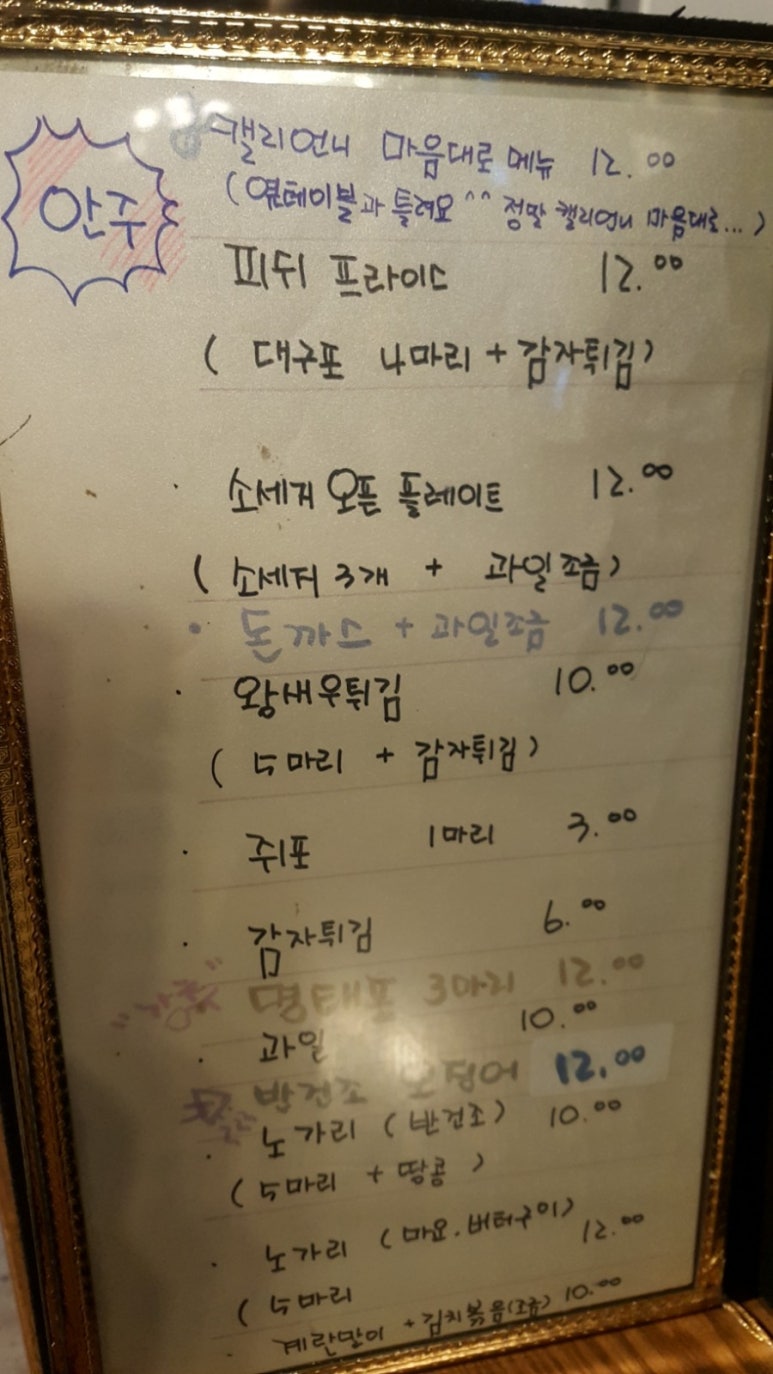 안주
캘리언니 마음대로 메뉴 12.00
(옆테이블과 틀려요^^ 정말 캘리언니 마음대로...)
피쉬 프라이드 12.00
( 대구포 4마리 + 감자튀김)
· 소세지 오픈 플레이트 12.00
( 소세지 3개 + 과일조금)
· 돈까스 + 과일조금 12.00
· 왕새우튀김 10.00
( 5마리 + 감자튀김)
· 쥐포 1마리 3.00
· 감자튀김 6.00
명태포 3마리 12.00
· 과일 10.00
반건조 오징어 12.00
· 노가리 (반건조) 10.00
( 5마리 + 땅콩 )
· 노가리 (마요.버터구이) 12.00
( 5마리
· 계란말이 + 김치볶음(조금) 10.00